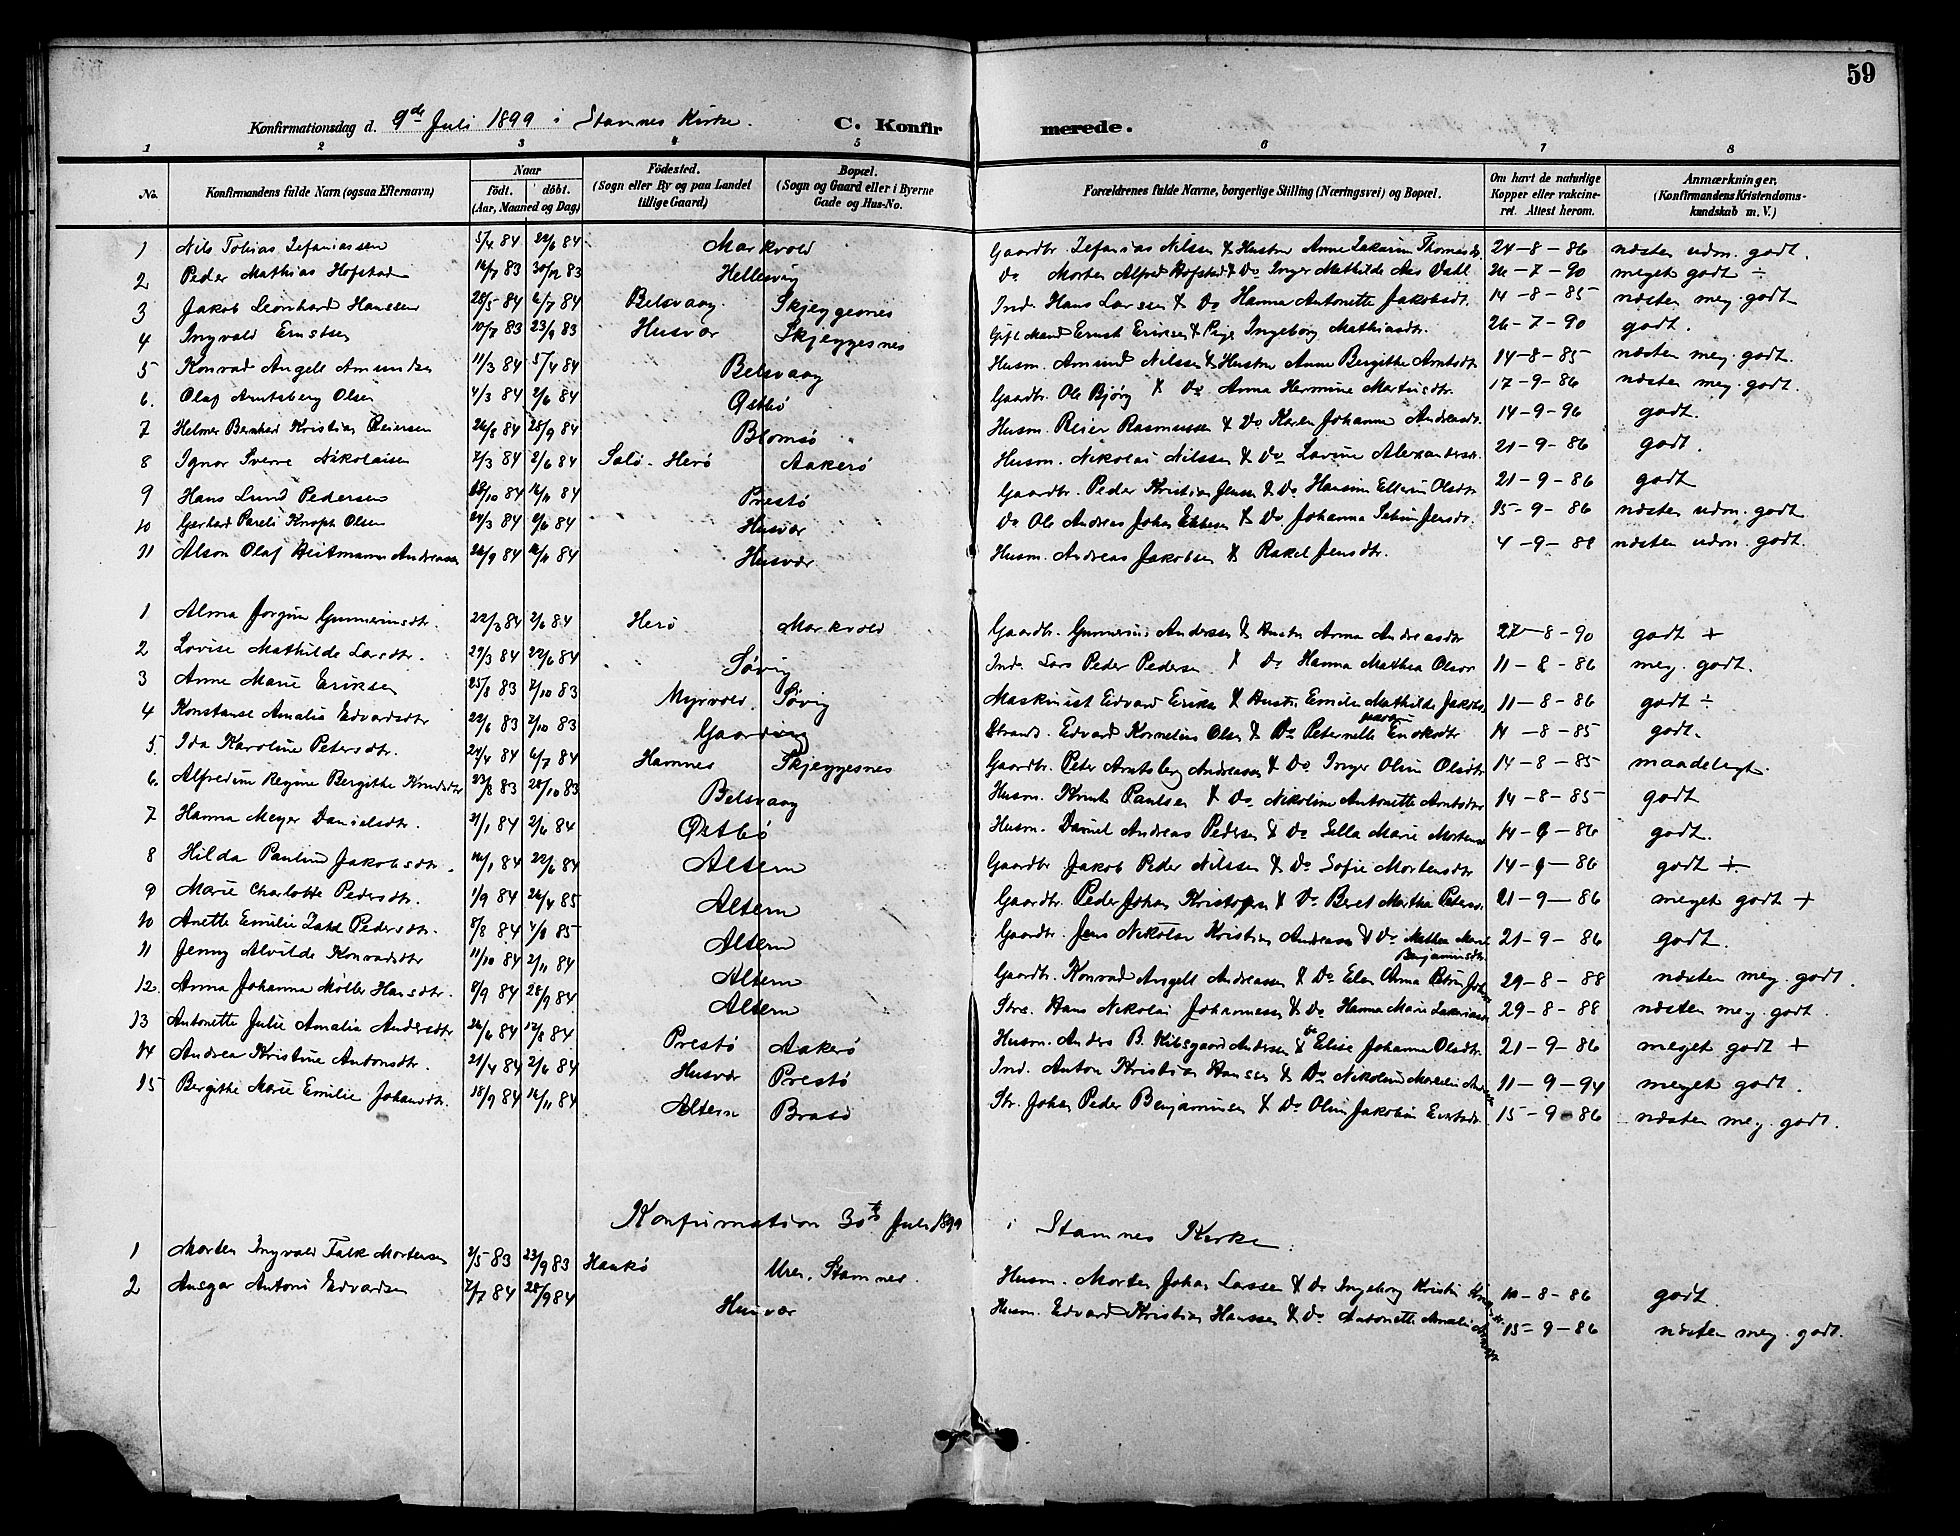 59
Konfirmationsdag d. 9de Juli 1899 i Stamnes Kirke. C. Konfirmerede.
1 2 3 4 5 6 7 8
No. Konfirmandens fulde Navn (ogsaa Efternavn) Naar födt. döbt. (Aar, Maaned og Dag) Födested. (Sogn eller By og paa Landet tillige Gaard) Bopæl. (Sogn og Gaard eller i Byerne Gade og Hus-No. Forældrenes fulde Navne, borgerlige Stilling (Næringsvei) og Bopæl. Om havt de naturlige Kopper eller vakcineret. Attest herom. Anmærkninger, (Konfirmandens Kristendomskundskab m. V.)
1 Nils Tobias Zefaniassen 5/4 84 22/6 84 Markvold Gaardbr. Zefanias Nilssen & Hustru Anne Zakarine Thomasdr. 24-8-86 næsten udm. godt.
2 Peder Mathias Hofstad 16/7 83 30/12 83 Hellesvig Do Morten Alfred Hofstad & Do Inger Mathilde Aas Dahl 26-7-90 meget godt ÷
3 Jakob Leonhard Hanssen 28/5 84 6/7 84 Belsvaag Skjeggesnes Ind. Hans Larssen & Do Hanna Antonette Jakobsdt. 14-8-85 næsten meg. godt
4 Ingvald Ernstsen 10/7 83 23/9 83 Husvær Skjeggesnes Gift Mand Ernst Eriksen & Pige Ingeborg Mathiasdtr. 26-7-90 godt.
5 Konrad Angell Amundsen 11/3 84 5/4 84 Belsvaag Husm. Amund Nilssen & Hustru Anne Bergithe Arntsdtr 14-8-85 næsten meg. godt.
6. Olaf Arntsberg Olsen 4/3 84 2/6 84 Østbø Gaardbr. Ole Bjørg & Do Anna Hermine Martinsdtr. 17-9-86 næsten meg. godt.
7 Helmer Bernhard Kristian Reiersen 26/8 84 28/9 84 Blomsø Husm. Reier Rasmussen & Do Karen Johanna Andreasdt. 14-9-96 godt.
8 Ignor Sverre Nikolaisen 7/3 84 2/6 84 Salø. Herø Aakerø Husm. Nikolai Nilssen & Do Lavine Alexandersdtr. 21-9-86 godt.
9 Hans Lund Pedersen /10 84 16/11 84 Prestø Gaardbr. Peder Kristian Jensen & Do Hansine Ellevine Olsdtr 21-9-86 godt
10 Gerhard Pareli Knoph Olsen /3 84 2/6 84 Husvær Do Ole Andreas Johan & Do Johanna Jensdt. 15-9-86 næsten udm. godt
11 Alson Olaf Heitmann Andreassen 26/9 84 16/11 84 Husvær Husm. Andreas Jakobsen & Rakel Jensdtr. 4-9-88 næsten udm. godt.
1 Alma Jørgine Gunneriusdtr. 22/3 84 2/6 84 Herø Markvold Gaardbr. Gunnerius Anderssen & Hustru Anna Andreasdtr 22-8-90 godt +
2 Lovise Mathilde Larsdtr. 29/3 84 22/6 84 Søvig Ind. Lars Peder Pedersen & Do Hanna Mathea Olsdr 11-8-86 meg. godt.
3 Anne Marie Eriksen 25/8 83 7/10 83 Myrvold. Søvig Maskinist Edvard Eriksen & Hustr. Emilie Mathilde Jakobs. 11-8-86 godt ÷
4 Konstanse Amalia Edvardsdtr 22/6 83 7/10 83 Gaarding Strands. Edvard Kornelius Olsen & Do Peternelle Enoksdtr 14-8-85 godt.
5. Ida Karoline Petersdtr. 24/4 84 6/7 84 Hamnes Skjeggesnes Gaardbr. Peter Arntsberg Andreassen & Do Inger Oline Olsdtr 14-8-85 maadeligt.
6. Alfredine Regine Bergithe Knudsdtr 23/8 83 28/10 83 Belsvaag Husm. Knut Paulsen & Do Nikoline Antonette Arntsdtr 14-8-85 godt
7 Hanna Meyer Danielsdtr. 21/1 84 2/6 84 Østbø Husm. Daniel Andreas Pedersen & Do Sella Marie Mortensd 14-9-86 godt.
8 Hilda Pauline Jakobsdtr. 16/1 84 22/6 84 Altern Gaardbr Jakob Peder Nilssen & Do Sofie Mortensdtr 14-9-86 godt +
9 Marie Charlotte Pedersdtr. 1/9 84 26/4 85 Altern Gaardbr. Peder Johan Kristofersen & Do Beret Martha Petersd. 21-9-86 meget godt +
10 Anette Emilie Pedersdtr. 8/8 84 4/8 85 Altern Gaardbr. Jens Nikolai Kristian Andreassen & Do Mathea Marie Benjaminsdtr 21-9-86 godt.
11 Jenny Alvilde Konradsdtr 11/10 84 2/11 84 Altern Gaardbr. Konrad Angell Andreassen & Do Elen Anna Petrine 29-8-88 næsten meg. godt.
12. Anna Johanna Møller Hansdtr. 8/9 84 28/9 84 Altern Strs. Hans Nikolai Johannessen & Do Hanna Marie Zakariasd 29-8-88 næsten meg. godt.
13 Antonette Julie Amalia Andersdtr 26/6 84 17/8 84 Prestø Aakerø Husm. Anders B. Kilsgaard Andersen & Do Elise Johanna Olsdtr. 21-9-86 meget godt +
14 Andrea Kristine Antonsdtr. 21/4 84 2/6 84 Husvær Prestø Ind. Anton Kristian Hanssen & Do Nikoline 11-9-94 meget godt.
15 Bergithe Marie Emilie Johansdtr. 18/9 84 16/11 84 Altern Brasø Str. Johan Peder Benjaminsen & Do Oline Jakobine 15-9-86 næsten meg. godt.
Konfirmation 30te Juli 1899 i Stamnes Kirke.
1 Morten Ingvald Falk Mortensen 2/5 83 23/9 83 Haukø Uren, Stamnes. Husm. Morten Johan Larssen & Do Ingeborg Kristine 10-8-86 godt.
2 Ansgar Antoni Edvardsen 7/7 84 28/9 84 Husvær Husm. Edvard Kristian Hanssen & Do Antonette Amalie 15-9-86 næsten meg. godt.